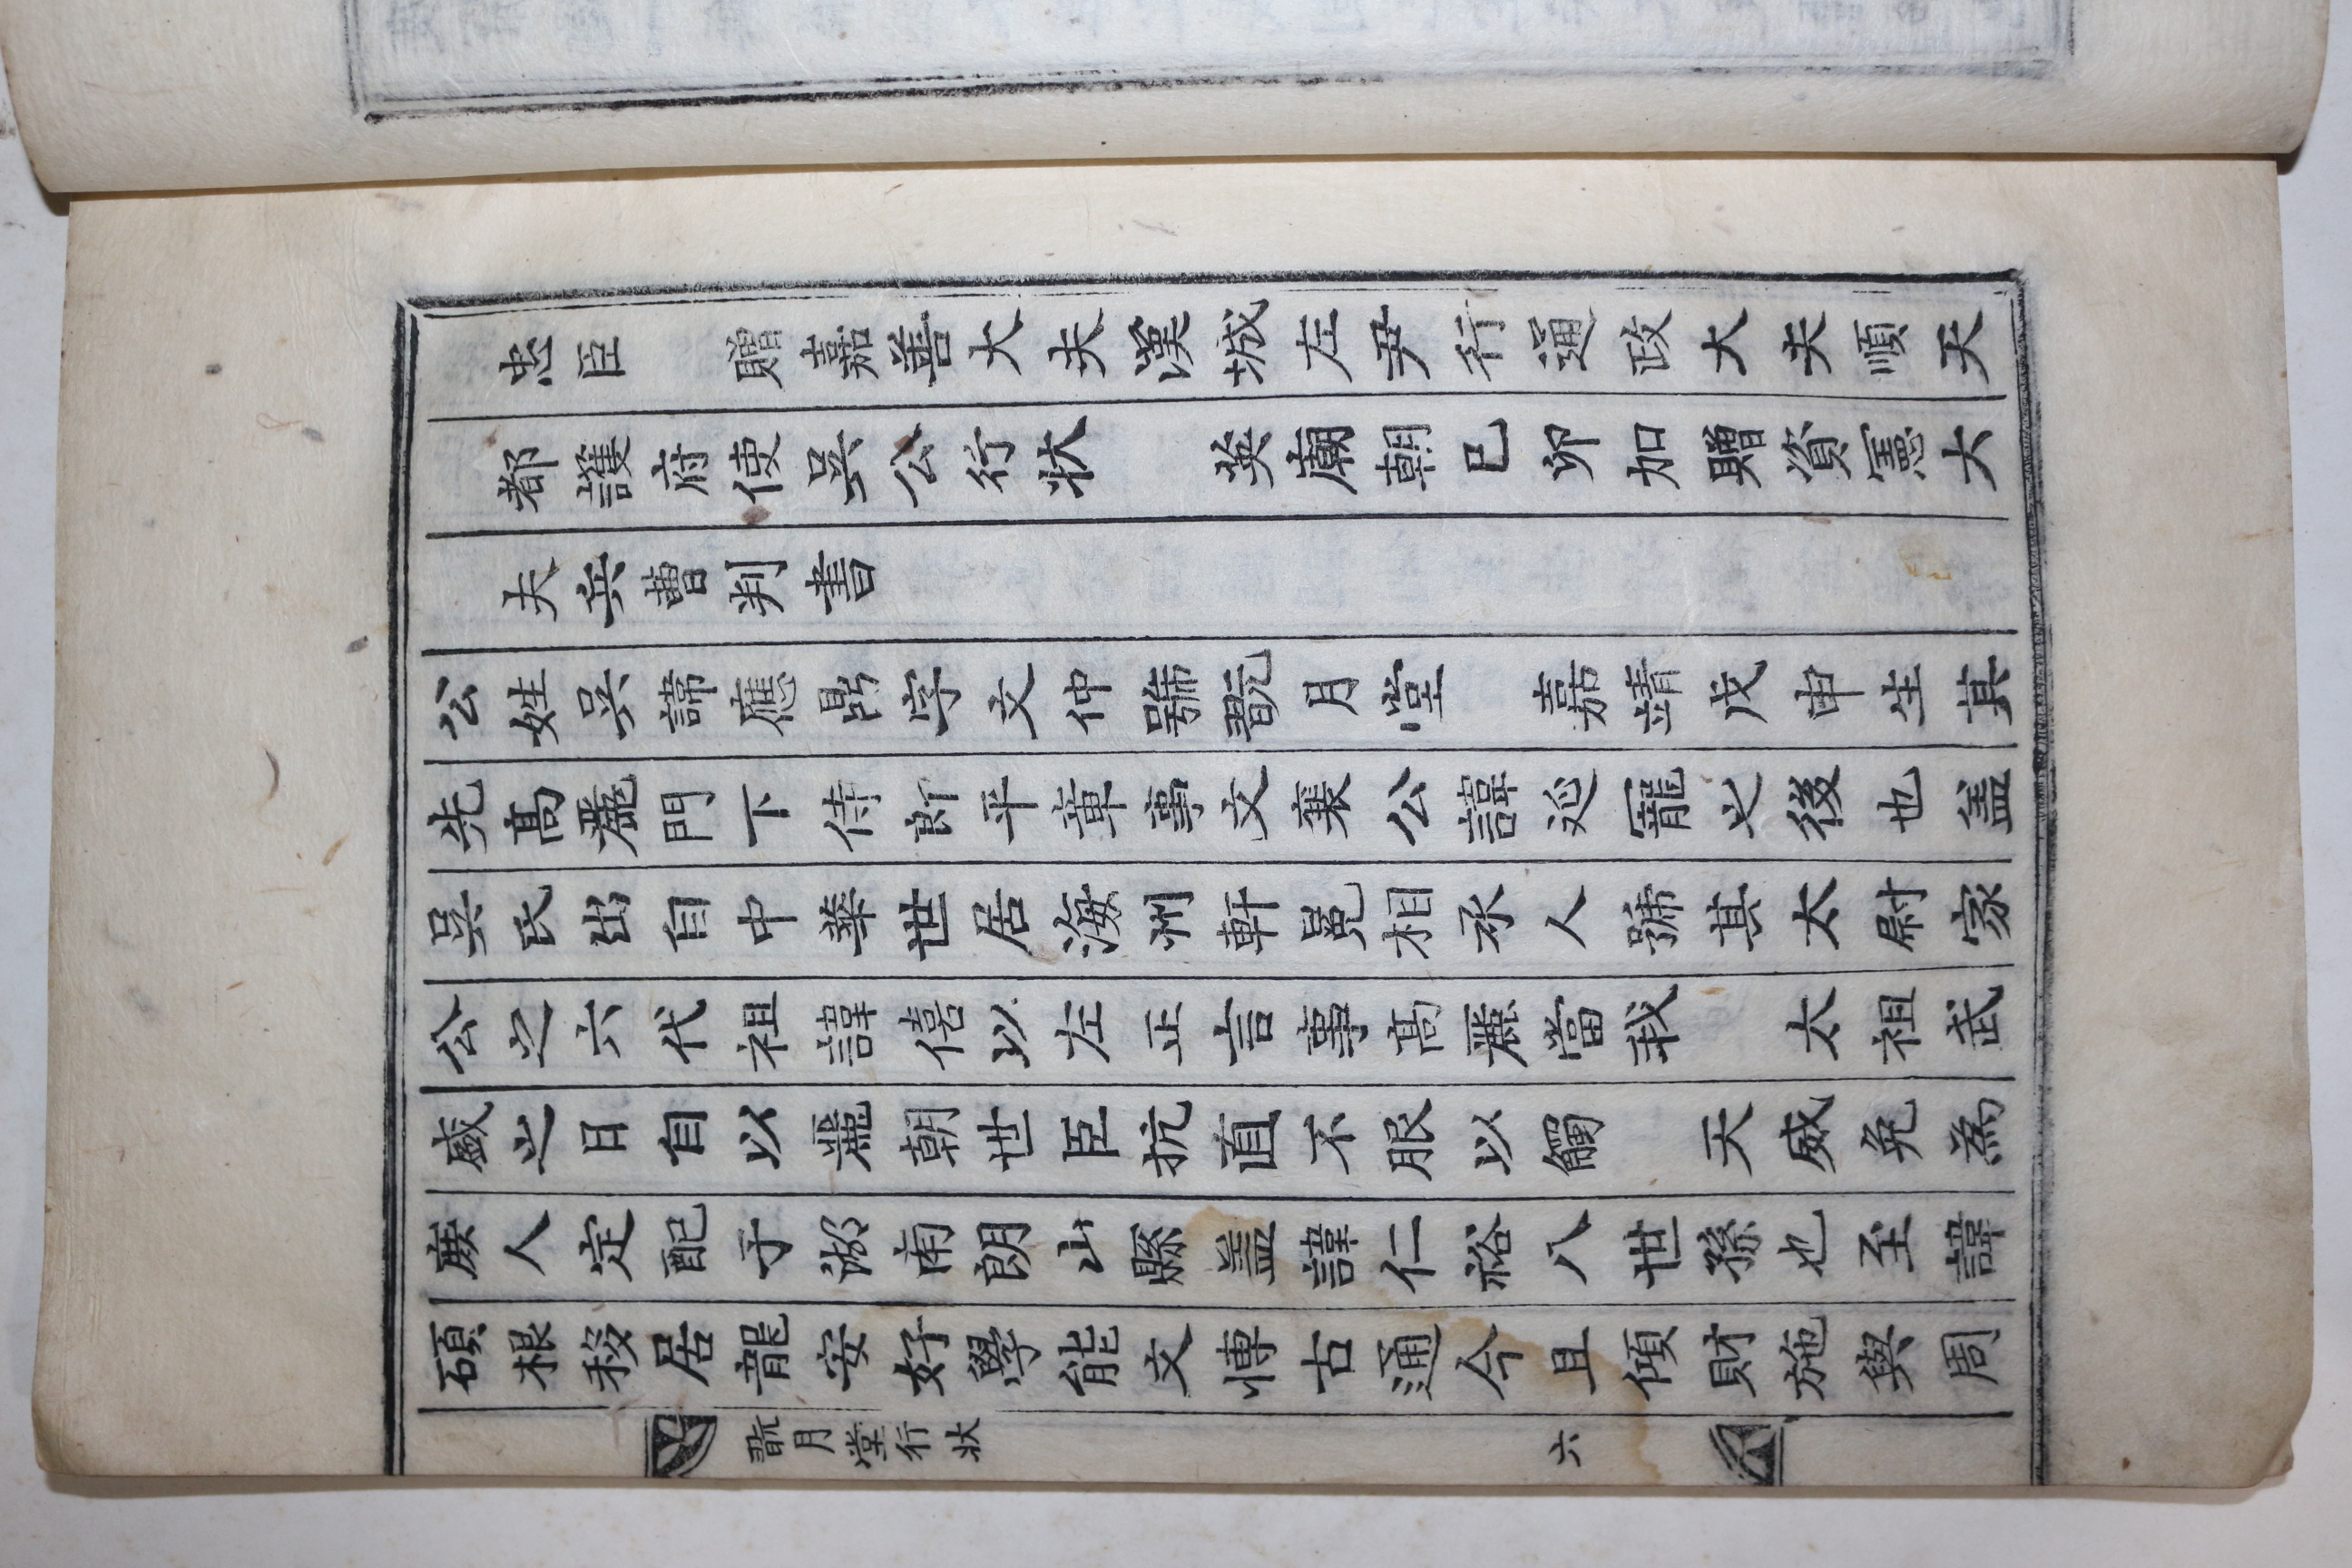 忠臣　贈嘉善大夫漢城左尹行通政大夫順天
都護府使吳公行狀　英廟朝己卯加贈資憲大
夫兵曹判書
公姓吳諱應鼎字文仲號翫月堂　嘉靖戊申生其
先高麗門下侍郎平章事文襄公諱延寵之後也盖
吳氏出自中華世居海州軒冕相承人號其太尉家
公之六代祖諱僖以左正言事高麗當我　太祖武
盛之日自以麗朝世臣抗直不服以觸　天威免為
庶人定配于湖南朗山縣盖諱仁裕八世孫也至諱
碩根移居龍安好學能文博古通今且傾財施與周
翫月堂行狀　六